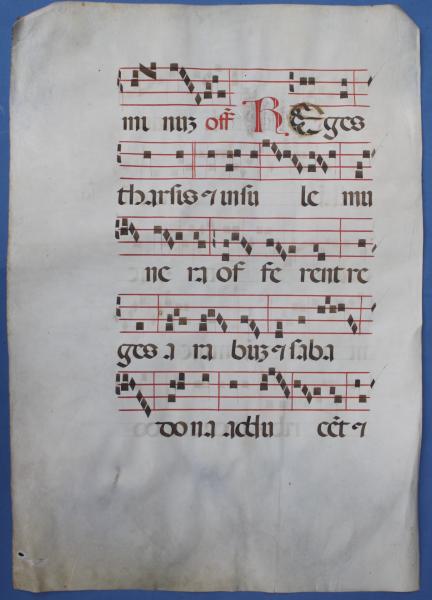 mi nuz off. REges
tharsis ⁊ insu le mu
ne ra of fe rent re
ges a ra buz ⁊ saba
dona addu cēt ⁊